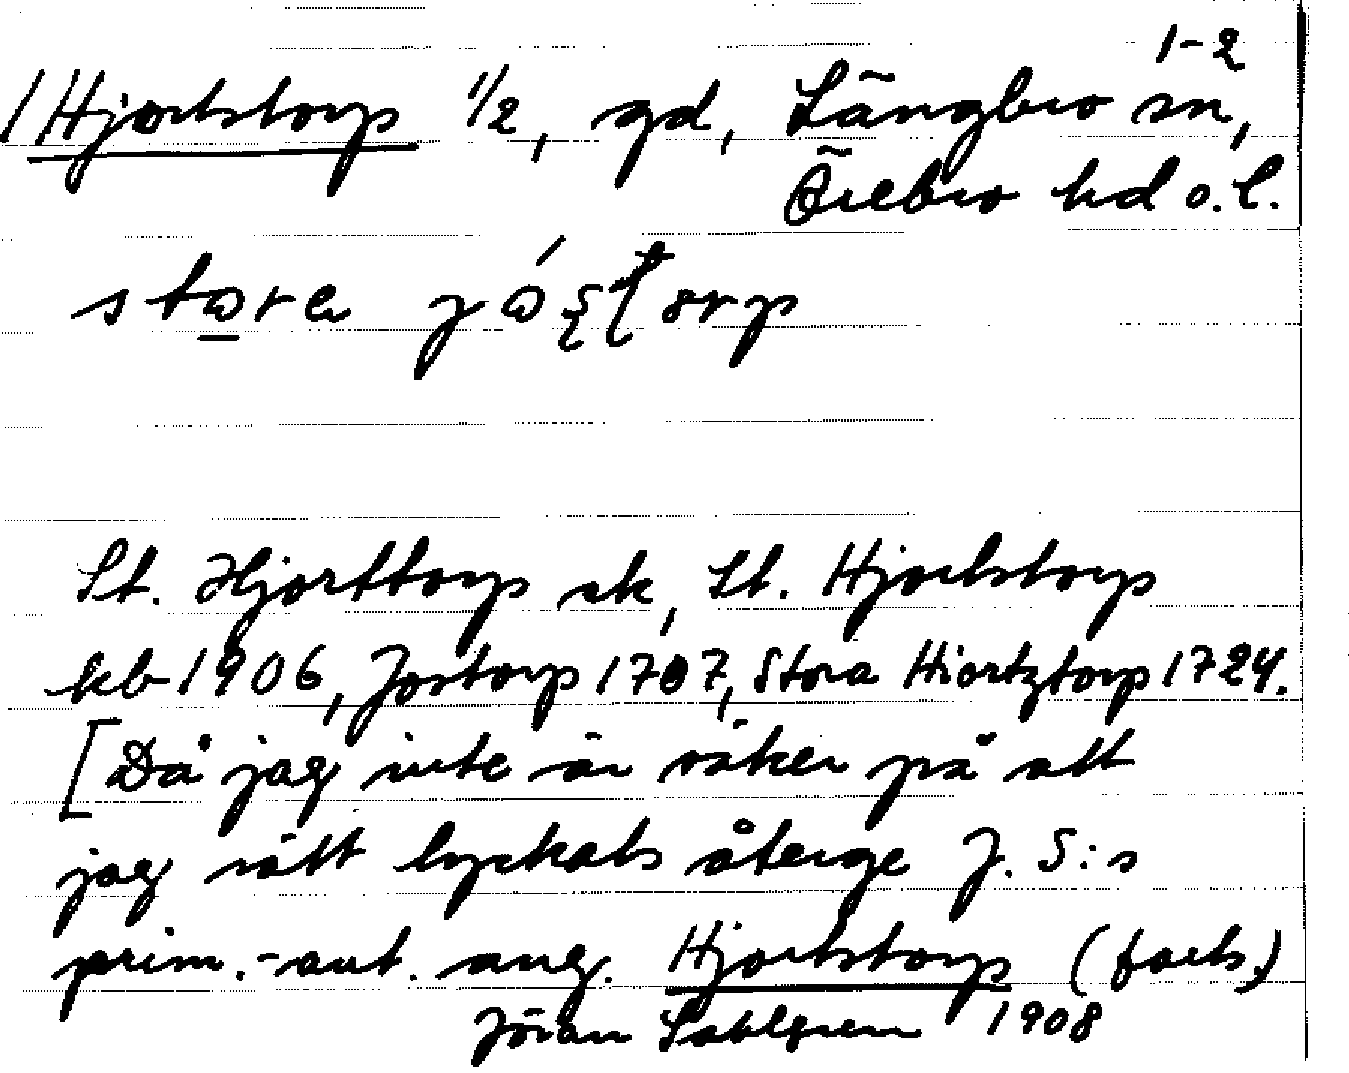 1-2
1/Hjortstorp 1/2, gd, Längbro sn,
Örebro hd o.l.
St. Hjorttorp sk, St. Hjortstorp
kb 1906, Jostorp 1707, Stora Hiortztorp 1724.
[Då jag inte är säker på att
jag rätt lyckats återge J. S:s
prim.-ant. ang. Hjortstorp (forts.)
Jöran Sahlgren 1908